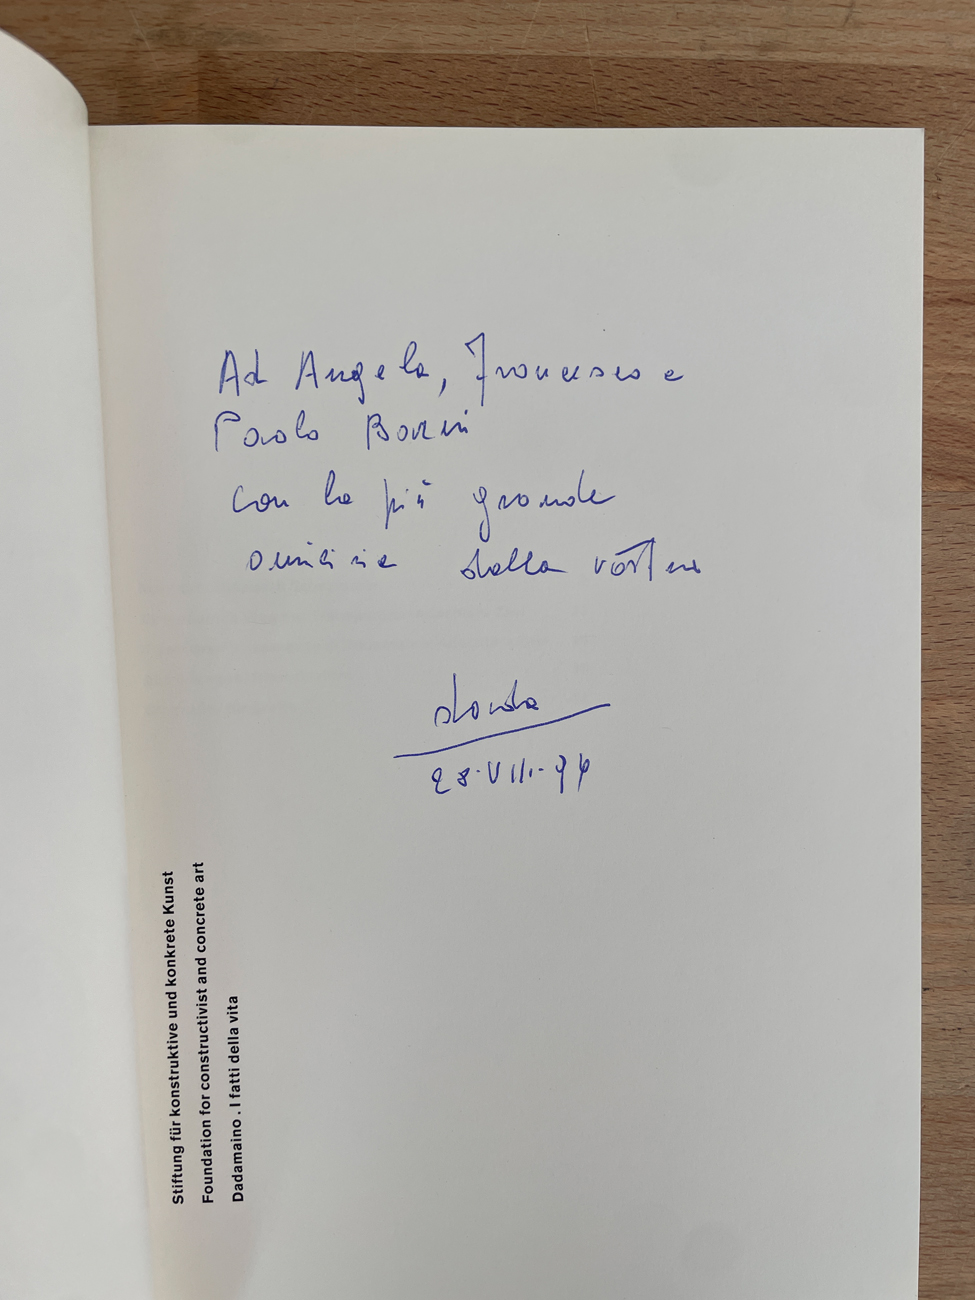 Ad Angela, Francesco e
Paolo Borini
con la più grande
amicizia dalla vostra
dada
28·VIII·94
Stiftung für konstruktive und konkrete Kunst
Foundation for constructivist and concrete art
Dadamaino . I fatti della vita